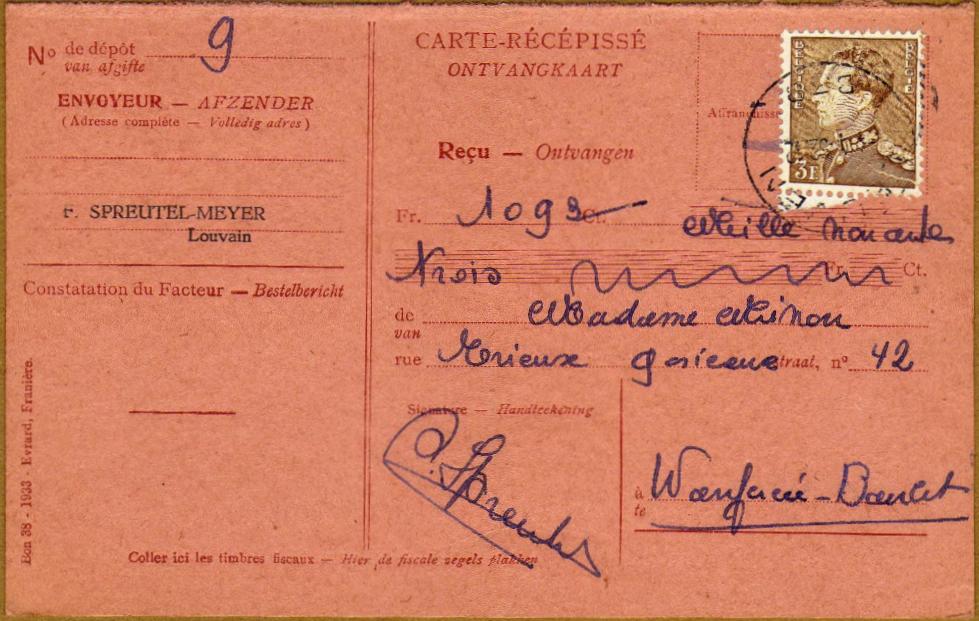 No de dépôt 9
van afgifte
ENVOYEUR — AFZENDER
(Adresse complète — Volledig adres)
F. SPREUTEL-MEYER
Louvain
Constatation du Facteur — Bestelbericht
Bon 38 - 1933 - Evrard, Franière.
CARTE-RÉCÉPISSÉ
ONTVANGKAART
BELGIQUE
BELGIE
3F
Reçu — Ontvangen
Fr. 1093 Ct. Mille nonante
Trois Fr. Ct.
de Madame Minon
van
rue Trieux straat, nº 42
Signature — Handteekening
à Wanfercée-Baulet
te
Coller ici les timbres fiscaux — Hier de fiscale zegels plakken